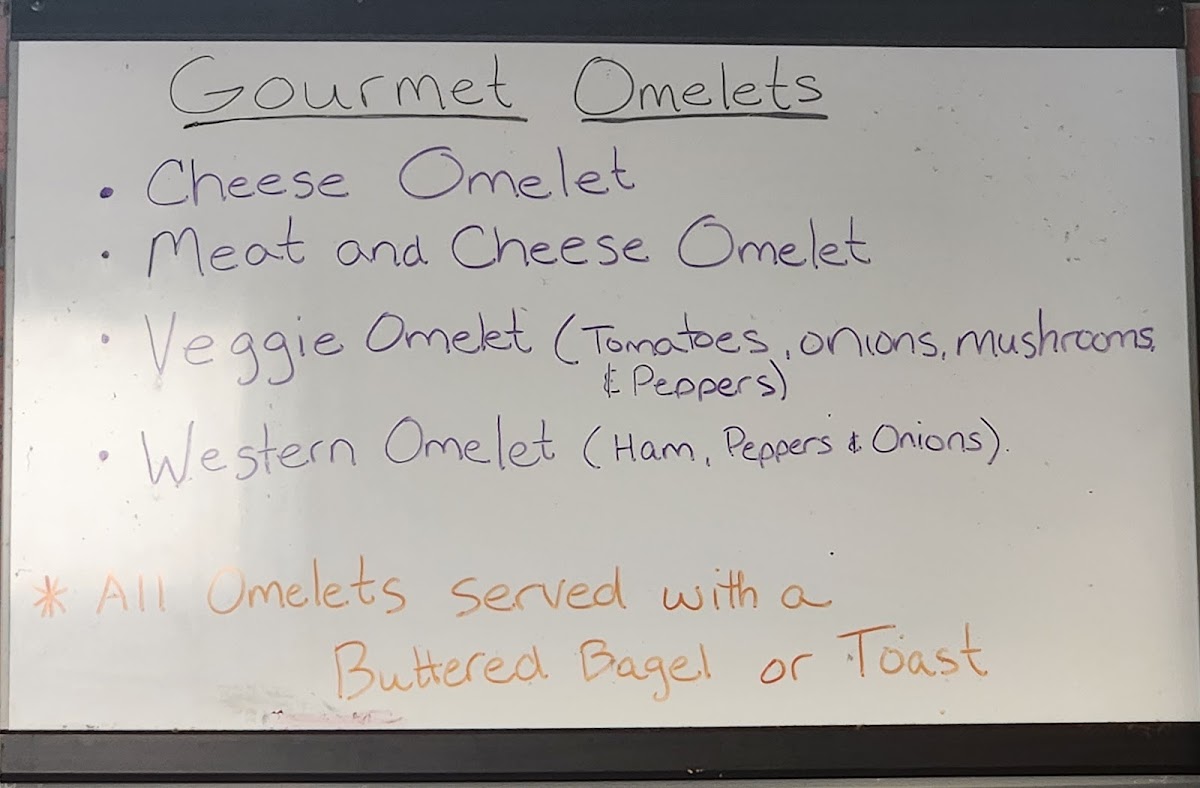 Gourmet Omelets
• Cheese Omelet
• Meat and Cheese Omelet
• Veggie Omelet (Tomatoes, onions, mushrooms,
& Peppers)
• Western Omelet (Ham, Peppers & Onions).
* All Omelets served with a
Buttered Bagel or Toast